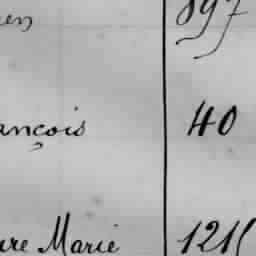 en 897
ançois 40
ure Marie 121